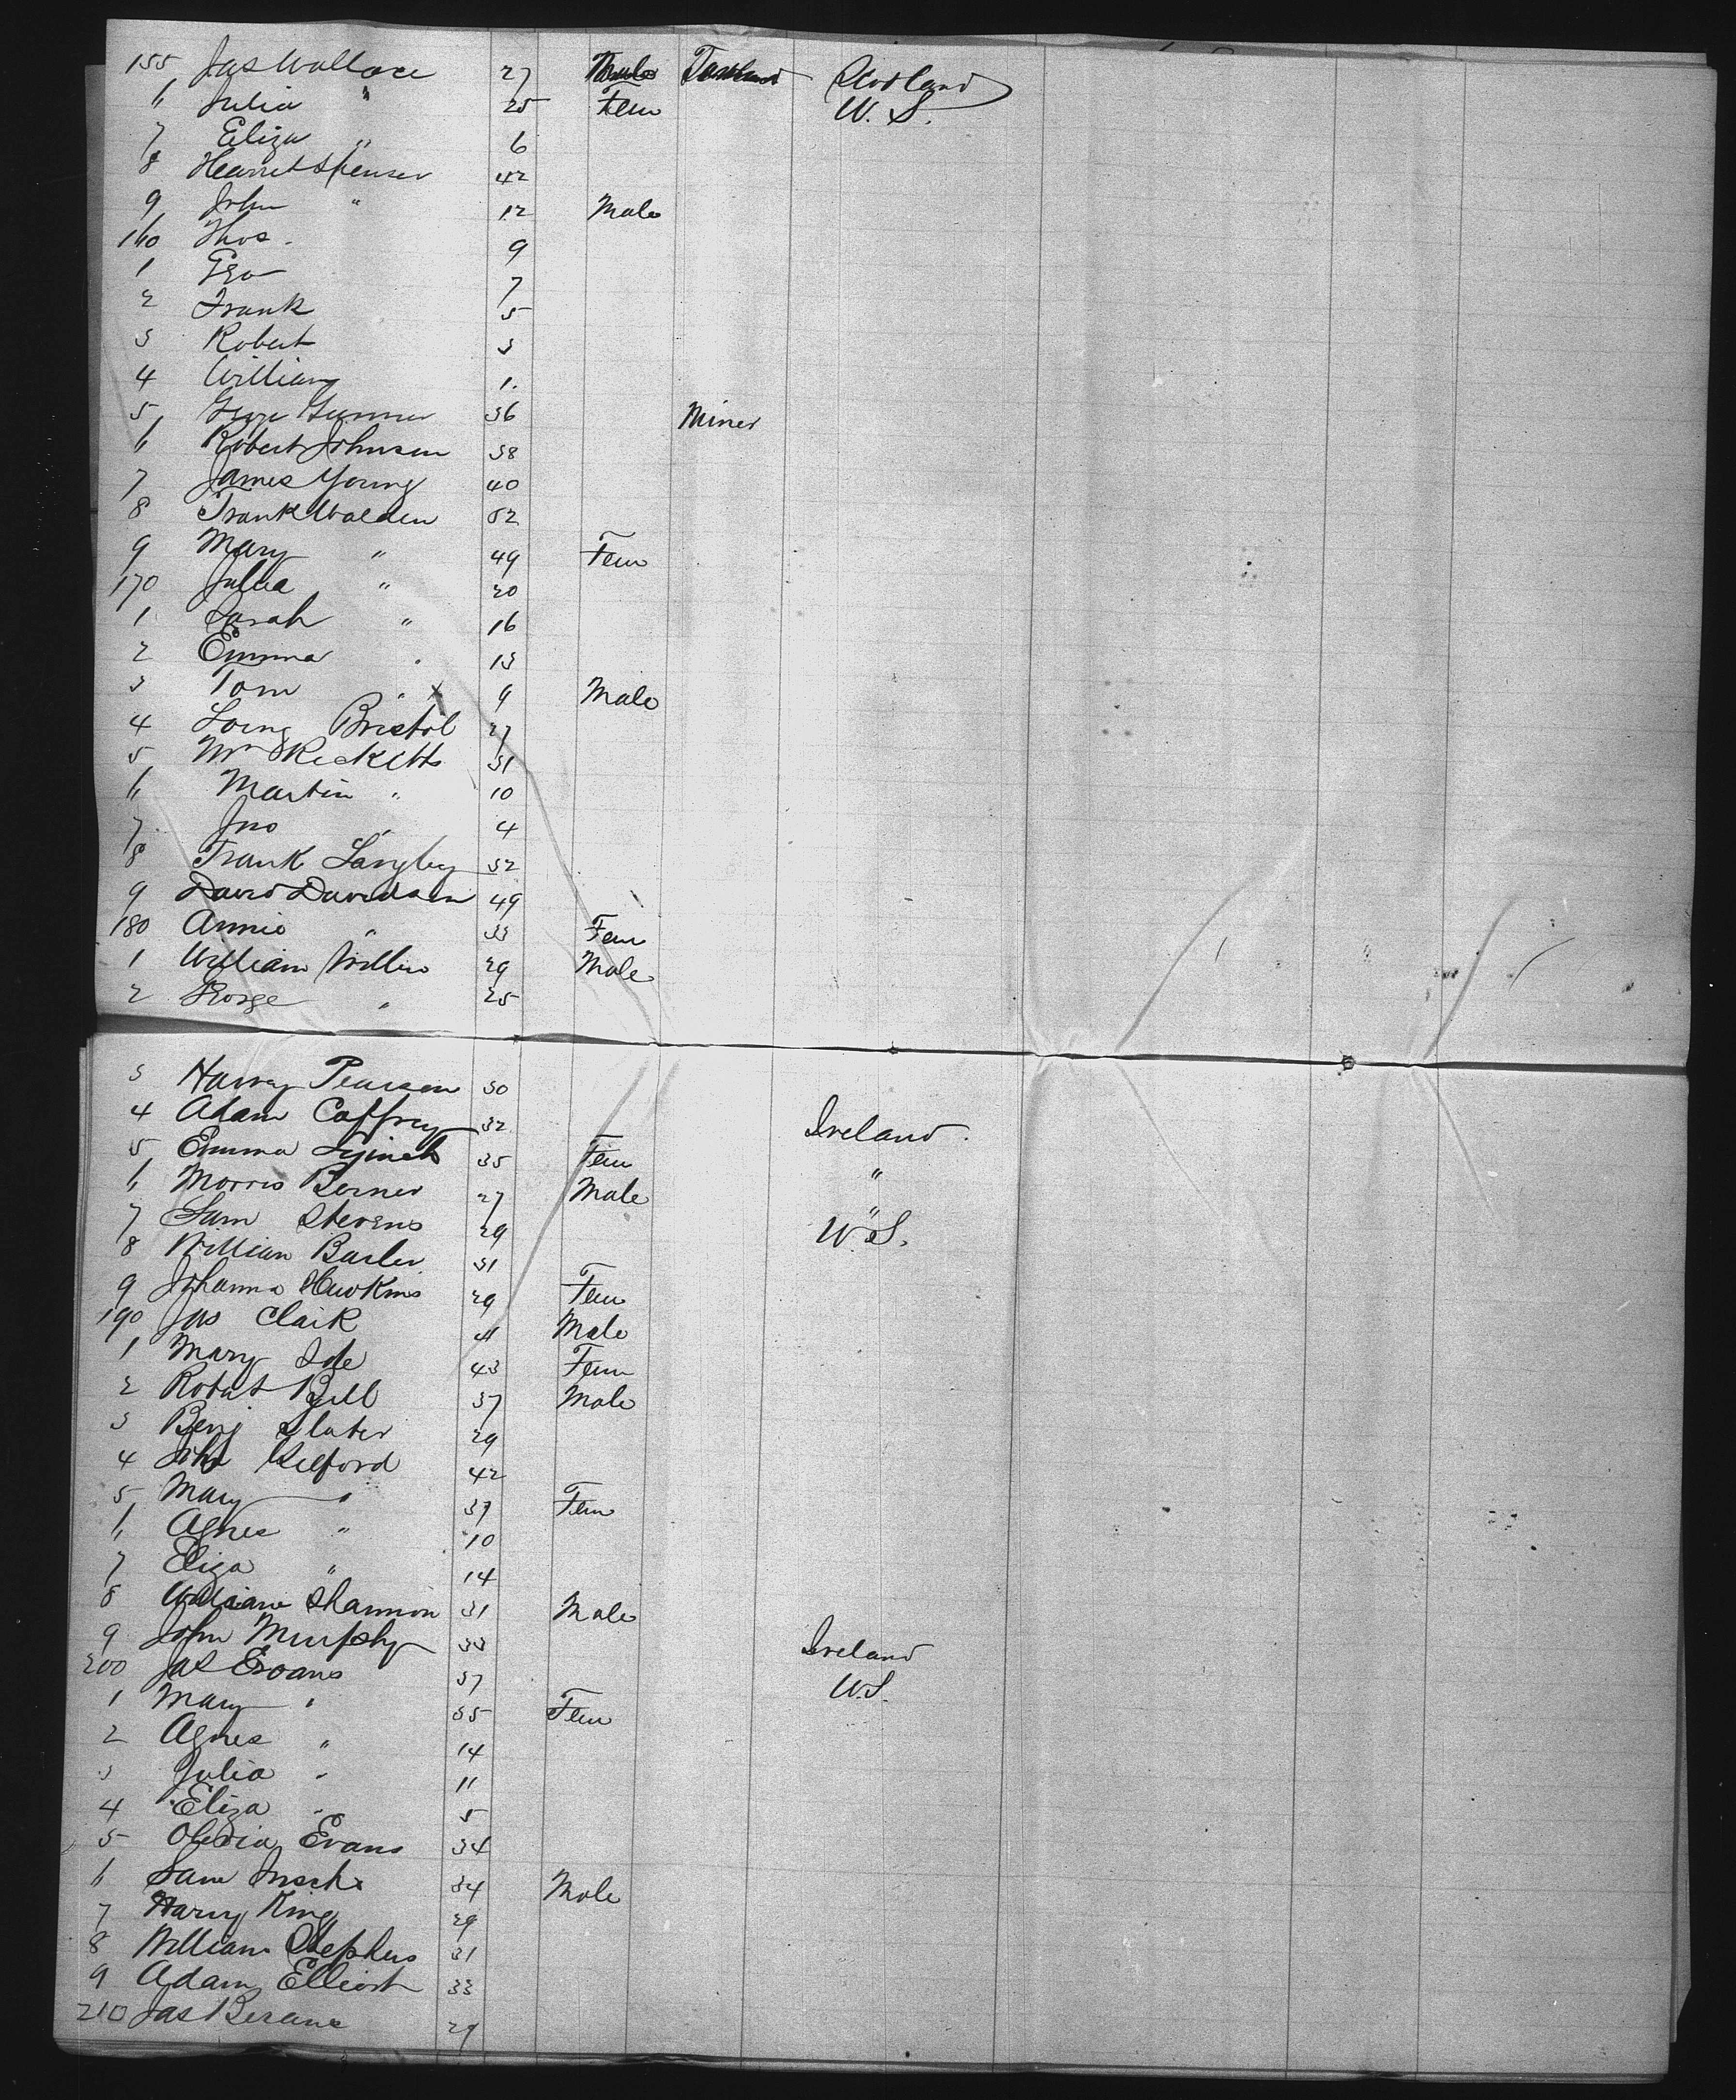 155 Jas Wallace 27 Male Scotland
6 Julia " 25 Fem U.S.
7 Eliza " 6
8 Harriet Spenser 42
9 John " 12 Male
160 Thos. 9
1 Geo 7
2 Frank 5
3 Robert 3
4 William 1.
5 36 Miner
6 Robert Johnson 38
7 James Young 40
8 Frank Walden 52
9 Mary " 49 Fem
170 Julia " 20
1 Sarah " 16
2 Emma " 13
3 Tom " x 9 Male
4 Loring Bristol 27
5 Wm Ricketts 31
6 Martin " 10
7 Jno " 4
8 Frank Langley 32
9 David Davidson 49
180 Annie " 33 Fem
1 William Miller 29 Male
2 George " 25
3 Harry Pearson 30
4 Adam Caffrey 32 Ireland.
5 Emma Lynch 35 Fem "
6 Morris Berner 27 Male "
7 Sam Stevens 29 U.S.
8 William Barler 31
9 Johanna Hawkins 29 Fem
190 Jas Clark 41 Male
1 Mary Ide 43 Fem
2 Robert Bell 37 Male
3 Benj Slater 29
4 John Gilford 42
5 Mary " 37 Fem
6 Agnes " 10
7 Eliza " 14
8 William Shannon 31 Male
9 John Murphy 33 Ireland
200 Jas Evans 37 U.S.
1 Mary " 35 Fem
2 Agnes " 14
3 Julia " 11
4 Eliza " 5
5 Olivia Evans 34
6 Sam 34 Male
7 Harry King 29
8 William Stephens 31
9 Adam Elliott 33
210 Jas 29